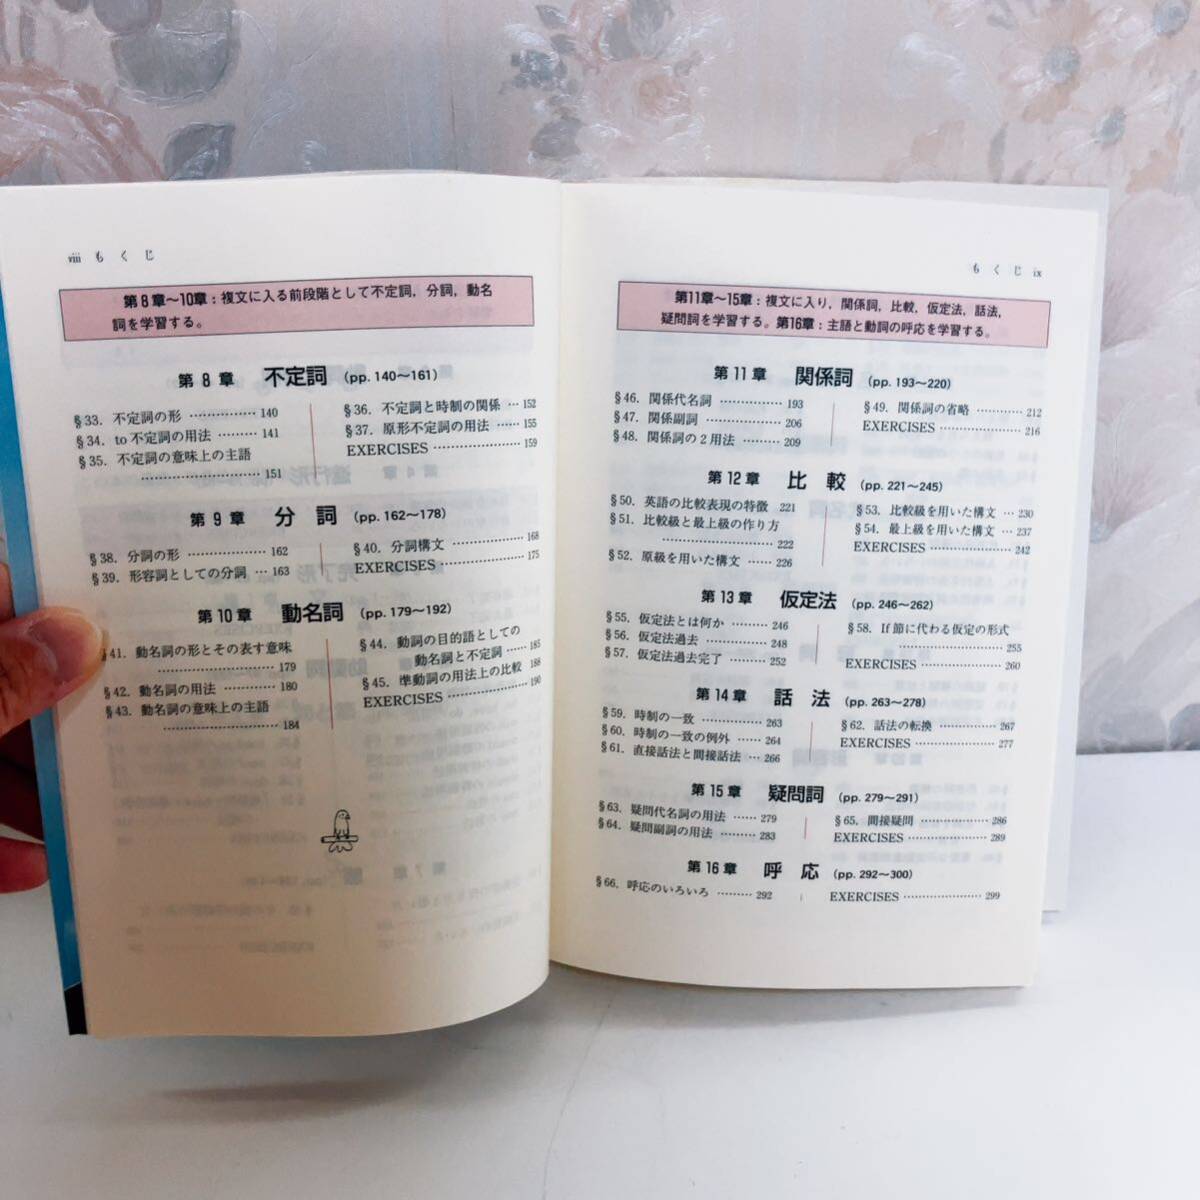 viii もくじ
第8章～10章：複文に入る前段階として不定詞，分詞，動名
詞を学習する。
第8章 不定詞 (pp. 140～161)
§33. 不定詞の形 …………… 140
§34. to不定詞の用法 ……… 141
§35. 不定詞の意味上の主語
…………………… 151
§36. 不定詞と時制の関係 … 152
§37. 原形不定詞の用法 …… 155
EXERCISES ……………… 159
第9章 分詞 (pp. 162～178)
§38. 分詞の形 …………… 162
§39. 形容詞としての分詞 … 163
§40. 分詞構文 …………… 168
EXERCISES ……………… 175
第10章 動名詞 (pp. 179～192)
§41. 動名詞の形とその表す意味
…………………… 179
§42. 動名詞の用法 ………… 180
§43. 動名詞の意味上の主語
…………………… 184
§44. 動詞の目的語としての
動名詞と不定詞 …… 185
§45. 準動詞の用法上の比較 188
EXERCISES ……………… 190
もくじ ix
第11章～15章：複文に入り，関係詞，比較，仮定法，話法，
疑問詞を学習する。第16章：主語と動詞の呼応を学習する。
第11章 関係詞 (pp. 193～220)
§46. 関係代名詞 …………… 193
§47. 関係副詞 ……………… 206
§48. 関係詞の2用法 ……… 209
§49. 関係詞の省略 ………… 212
EXERCISES ……………… 216
第12章 比較 (pp. 221～245)
§50. 英語の比較表現の特徴 221
§51. 比較級と最上級の作り方
…………………… 222
§52. 原級を用いた構文 …… 226
§53. 比較級を用いた構文 … 230
§54. 最上級を用いた構文 … 237
EXERCISES ……………… 242
第13章 仮定法 (pp. 246～262)
§55. 仮定法とは何か ……… 246
§56. 仮定法過去 …………… 248
§57. 仮定法過去完了 ……… 252
§58. If節に代わる仮定の形式
…………………… 255
EXERCISES ……………… 260
第14章 話法 (pp. 263～278)
§59. 時制の一致 …………… 263
§60. 時制の一致の例外 …… 264
§61. 直接話法と間接話法 … 266
§62. 話法の転換 …………… 267
EXERCISES ……………… 277
第15章 疑問詞 (pp. 279～291)
§63. 疑問代名詞の用法 …… 279
§64. 疑問副詞の用法 ……… 283
§65. 間接疑問 ……………… 286
EXERCISES ……………… 289
第16章 呼応 (pp. 292～300)
§66. 呼応のいろいろ ……… 292
EXERCISES ……………… 299